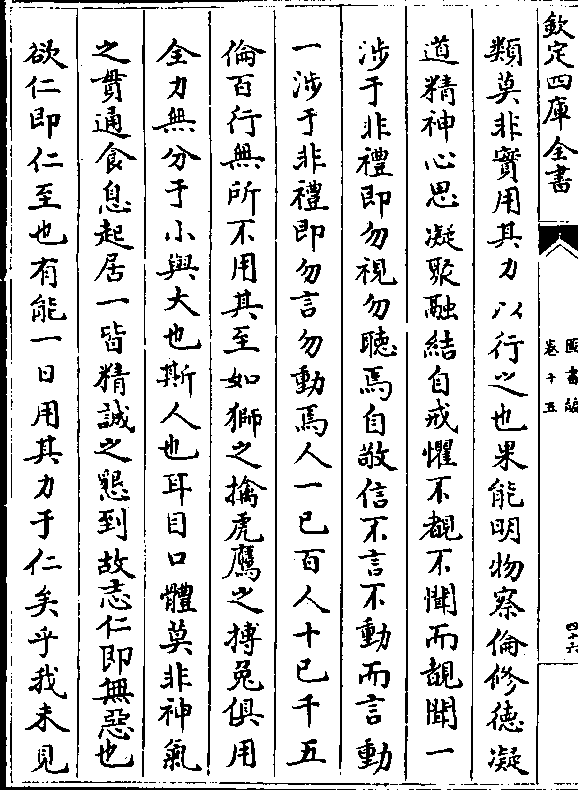 欽定四庫全書
圖書編
卷十五
四十六
類莫非實用其力以行之也果能明物察倫修德凝
道精神心思凝聚融結自戒懼不覩不聞而覩聞一
涉于非禮即勿視勿聽焉自敬信不言不動而言動
一涉于非禮即勿言勿動焉人一已百人十已千五
倫百行無所不用其至如獅之擒虎鷹之搏兔俱用
全力無分于小與大也斯人也耳目口體莫非神氣
之貫通食息起居一皆精誠之懇到故志仁即無惡也
欲仁即仁至也有能一日用其力于仁矣乎我未見